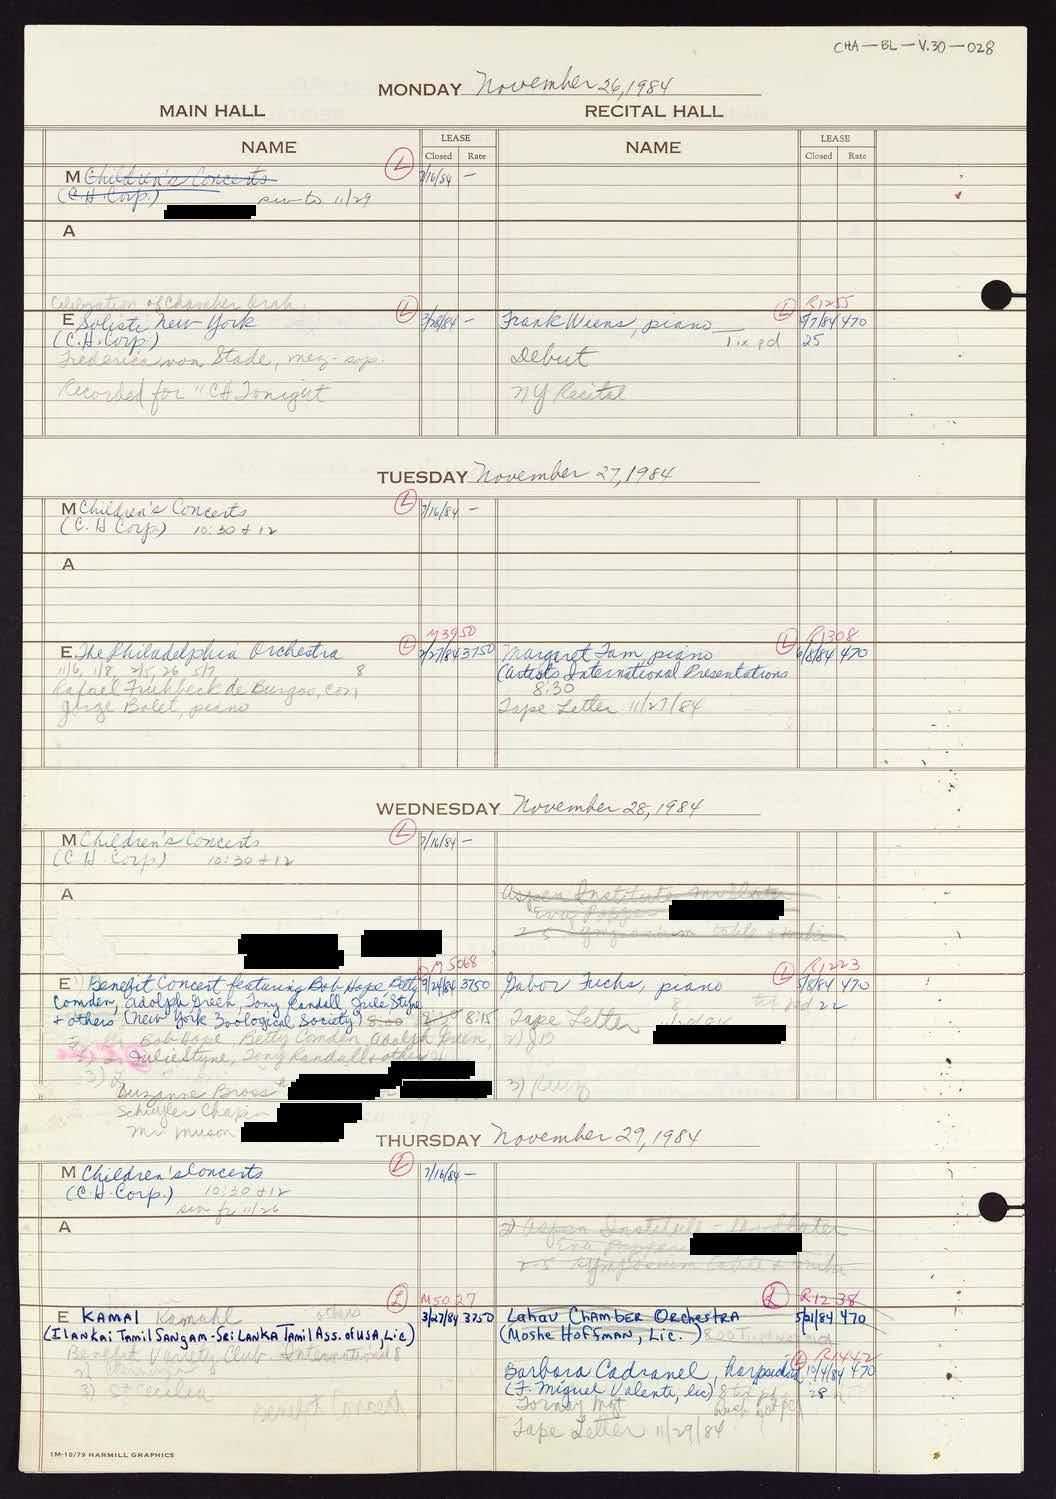 CHA-BL-V.30-028
MONDAY November 26, 1984
MAIN HALL RECITAL HALL
NAME LEASE NAME LEASE
Closed Rate Closed Rate
M Children's Concerts L 7/16/84 -
(C.H. Corp.) to 11/29
A
Celebration of Chamber Orch. R1255
E Solisti New York L 3/28/84 - Frank Wiens, piano L 5/7/84 470
(C.H. Corp.) Tix pd 25
Frederica von Stade, mez-sop. Debut
Recorded for "CH Tonight NY Recital
TUESDAY November 27, 1984
M Children's Concerts L 7/16/84 -
(C.H Corp.) 10:30 + 12
A
M3950 R1308
E. The Philadelphia Orchestra L 2/27/84 3750 Margaret Tam, piano L 6/8/84 470
11/6, 1/8, 2/5, 26 5/7 8 (Artists International Presentations
Rafael Fruhbeck de Burgos, con 8:30
Jorge Bolet, piano Tape Letter 11/27/84
WEDNESDAY November 28, 1984
M Children's Concerts L 7/16/84 -
(C H Corp) 10:30 + 12
A Aspen Institute
Eva Popper
2-5 Symposium table +
M5068 R1223
E Benefit Concert featuring Bob Hope, Betty 9/24/84 3750 Gabor Fuchs, piano L 5/8/84 470
Comden, Adolph Green, Tony Randall, Jule Styne 8 pd 22
+ others (New York Zoological Society) 8:00 8:30 8:15 Tape Letter
Bob Hope, Betty Comden, Adolph Green, 2) JD
Julie Styne, Tony Randall + others
3) 3)
Suzanne Bross
Schuyler Chapin
Mr. Muson
THURSDAY November 29, 1984
M Children's Concerts L 7/16/84 -
(C.H. Corp.) 10:30 + 12
fr 11/26
A 2) Aspen Institute -
Eva Popper
2-5 Symposium table +
L M5027 L R1238
E KAMAl Kamahl others 3/27/84 3750 Lahav Chamber Orchestra 5/21/84 470
(Ilankai Tamil Sangam-Sri Lanka Tamil Ass. of USA, Lic) (Moshe Hoffman, Lic.) 8:00
Benefit Variety Club International 8 L R1442
2) Barbara Cadranel, harpsichd 10/4/84 470
3) St Cecilia (F. Miguel Valenti, lic) 8 28
Benefit Concert Tornay Mgt
Tape Letter 11/29/84
1M-10/79 HARMILL GRAPHICS